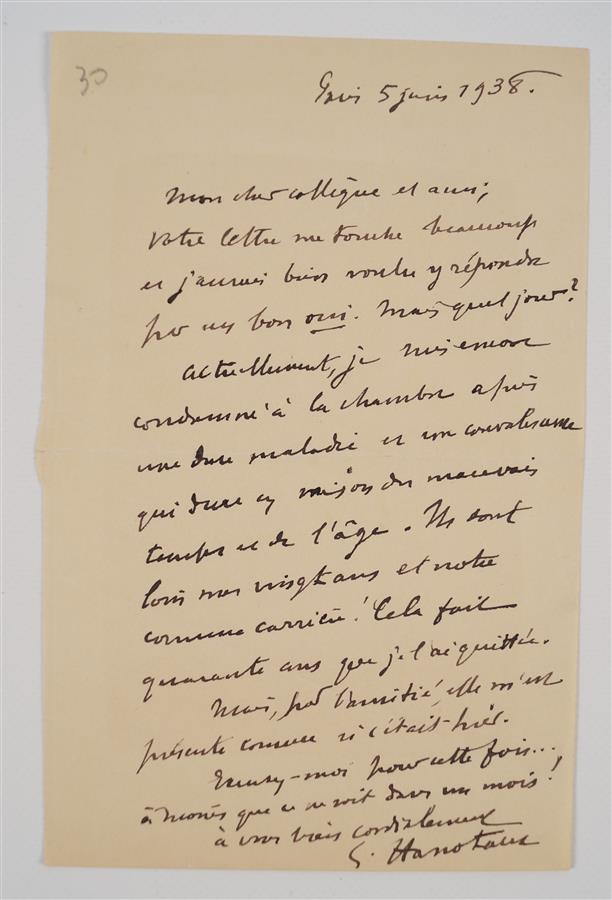 30
Paris 5 juin 1938.
Mon cher collègue et ami,
Votre lettre me touche beaucoup
et j'aurais bien voulu y répondre
par un bon oui. Mais quel jour?
Actuellement, je suis encore
condamné à la chambre après
une dure maladie et une convalescence
qui dure en raison du mauvais
temps et de l'âge. Ils sont
loin nos vingt ans et notre
commune carrière! Cela fait
quarante ans que je l'ai quittée.
Mais, par l'amitié, elle m'est
présente comme si c'était hier.
Excusez-moi pour cette fois...
à moins que ce ne soit dans un mois!
à vous bien cordialement
G. Hanotaux